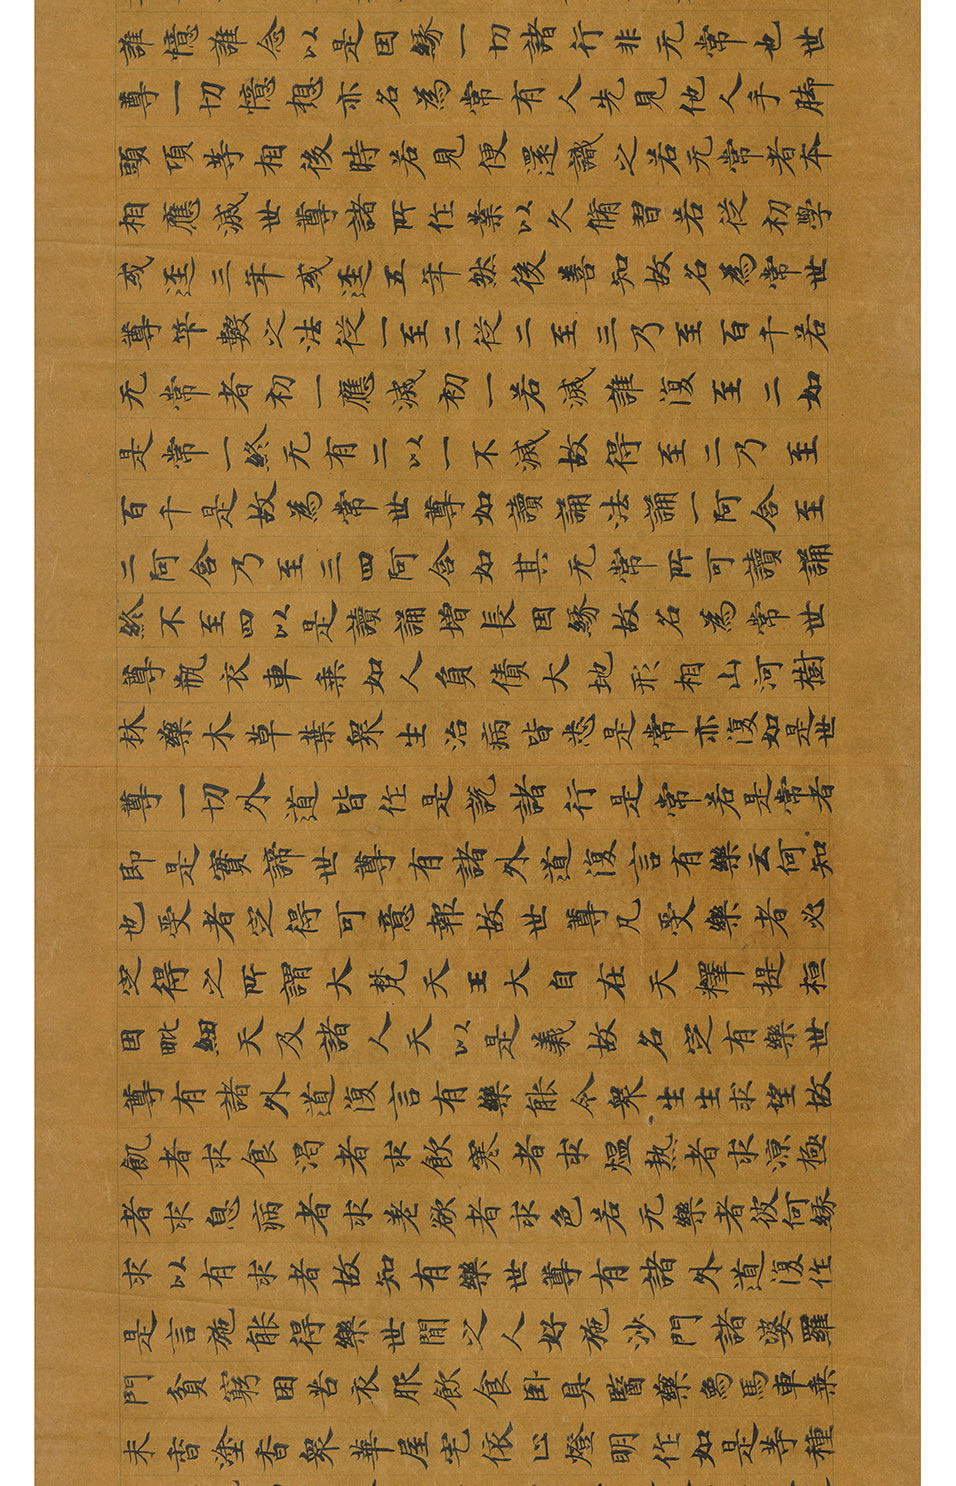 誰憶誰念以是因緣一切諸行非无常也世
尊一切憶想亦名為常有人先見他人手脚
頭項等相後時若見便還識之若无常者本
相應滅世尊諸所作業以久脩習若從初學
或逕三年或逕五年然後善知故名為常世
尊笇數之法從一至二從二至三乃至百千若
无常者初一應滅初一若滅誰復至二如
是常一終无有二以一不滅故得至二乃至
百千是故為常世尊如讀誦法誦一阿含至
二阿含乃至三四阿含如其无常所可讀誦
終不至四以是讀誦增長因緣故名為常世
尊瓶衣車乘如人負債大地形相山河樹
林藥木草葉衆生治病皆悉是常亦復如是世
尊一切外道皆作是說諸行是常若是常者
即是實諦世尊有諸外道復言有樂云何知
也受者定得可意報故世尊凡受樂者必
定得之所謂大梵天王大自在天釋提桓
因毗紐天及諸人天以是義故名定有樂世
尊有諸外道復言有樂能令衆生生求望故
飢者求食渴者求飲寒者求熅熱者求涼極
者求息病者求差欲者求色若无樂者彼何緣
求以有求者故知有樂世尊有諸外道復作
是言施能得樂世間之人好施沙門諸婆羅
門貧窮困苦衣服飲食卧具醫藥象馬車乘
末香塗香衆華屋宅依止燈明作如是等種